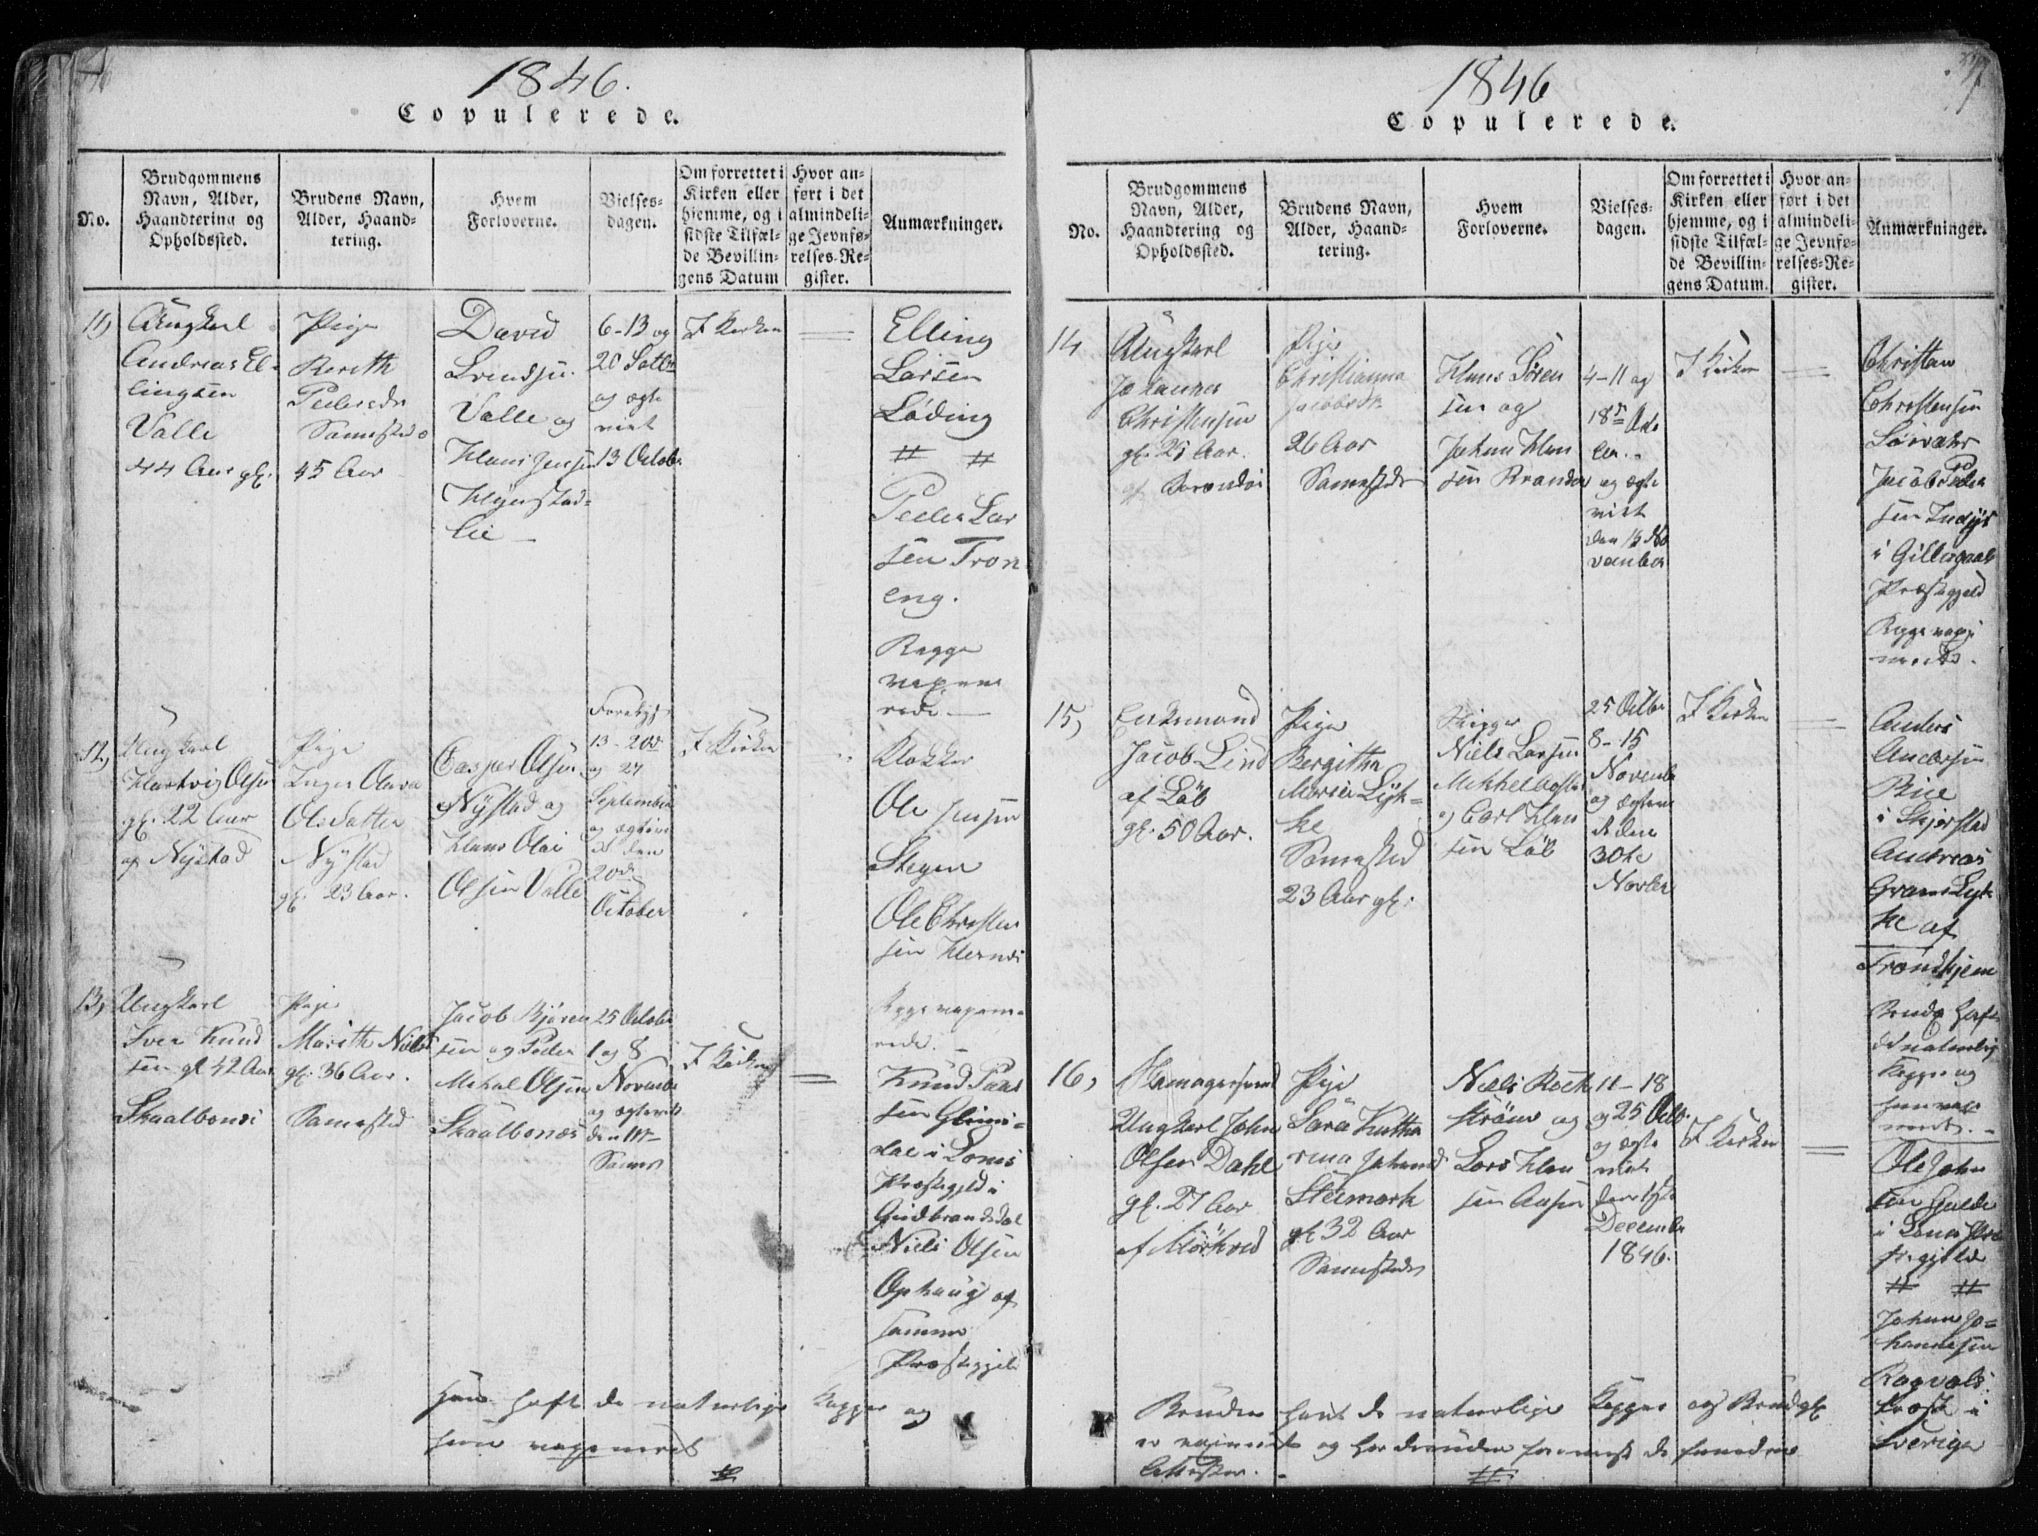 1846.
Copulerede.
No.
Brudgommens
Navn, Alder,
Haandtering og
Opholdssted.
Brudens Navn,
Alder, Haand-
tering.
Hvem
Forloverne.
Vielses-
dagen.
Om forrettet i
Kirken eller
hjemme, og i
sidste Tilfæl-
de Bevillin-
gens Datum
Hvor an-
ført i det
almindeli-
ge Jevnfø-
relses-Re-
gister.
Anmærkninger.
11,
Ungkarl
Andreas El-
lingsen
Valle
44 Aar gl.
Pige
Bereth
Pedersdr
Samesteds
45 Aar
David
Svendsen
Valle og
Hans Jensen
lie
6-13 og
20 Sptbr
og ægte
viet
13 October
I Kirken
Elling
Larsen
Løding
Peder Lar
sen Tron
eng.
Begge
vaccine
rede.
12,
Ungkarl
Hartvig Olsen
gl. 22 Aar
af Nystad
Pige
Inger Olava
Olsdatter
Nystad
gl. 23 Aar.
Casper Olsen
Nystad og
Hans Olai
Olsen Valle
13-20de
og 27
September
og ægtevi
et den
20de
October
I Kirken
Klokker
Ole Jensen
Skegen
Ole Christen
sen
Begge vaccine-
rede.
13,
Ungkarl
Iver Knud
sen gl 42 Aar
Skaalbones
Pige
Marith Niels
gl. 36 Aar.
Samested
Jacob Bjørn
sen og Peder
Mikal Olsen
Skaalbones
25 October
1 og 8
Novembr
og ægteviet
den 11te
Samme
I Kirken
Knud Paas
sen Glims-
dal i Loms
Præstegjeld i
Gudbrandsdal
Niels Olsen
Ophaug af
samme
Præstegjeld
Hun haft de naturlige Kopper og
han vaccineret
1846
Copulerede.
No.
Brudgommens
Navn, Alder,
Haandtering og
Opholdssted.
Brudens Navn,
Alder, Haand-
tering.
Hvem
Forloverne.
Vielses-
dagen.
Om forrettet i
Kirken eller
hjemme, og i
sidste Tilfæl-
de Bevillin-
gens Datum.
Hvor an-
ført i det
almindeli-
ge Jevnfø-
relses-Re-
gister.
Anmærkninger.
14
Ungkarl
Johannes
Christensen
gl. 25 Aar.
af
Pige
Christianna
Jacobsdr
26 Aar
Samesteds
Hans Søren
sen og
Johan Han
sen
4-11 og
18de Octo
ber.
og ægte
viet
den
vember
I Kirken
Christen
Christensen
Jacob Peder
sen
i Gilleskaals
Præstegjeld
Begge vacci
nerede.
15,
Enkemand
Jacob Lind
af Løb
gl. 50 Aar.
Pige
Bergitha
Maria Lyk-
ke
Samested
23 Aar gl.
Niels Larsen
og Carl Han
sen Løb
25 Octbr
8-15
Novembr
og ægtevi
et den
30te
Novbr
I Kirken
Anders
Andersen
i Skjerstad
Andreas
Gram Lyk-
ke af
Trondhjem
Brude haft
de naturlig
Kopper og
han vacci
neret.
16,
Ungkarl John
Olsen Dahl
gl. 27 Aar
af Mörkved
Pige
Sara Katha
rina Johansd
Steimark
gl 32 Aar
Samesteds
Niels Rock
strøm og
Lars Han
sen Aasen
11-18
og 25 Octbr
og ægte
viet
den 1ste
Decembr
1846.
I Kirken
Ole John
sen
i Loms Præ
stegjeld
Johan Jo-
hannesen
Ragvals
Præst i
Sverige
Bruden haft de naturlige Kopper og Brudg.
er vaccineret og har desuden foreviist de fornødne
Attester.